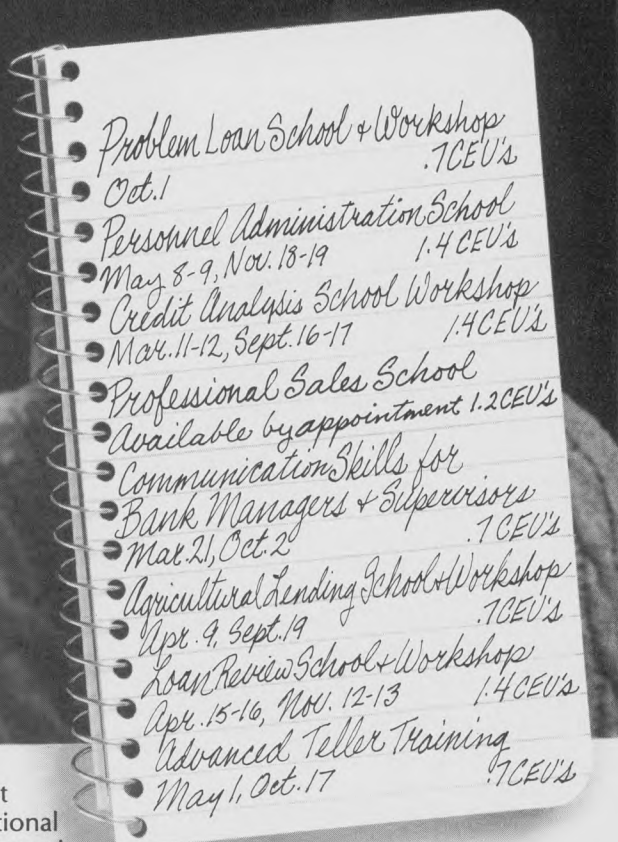 Problem Loan School + Workshop
Oct. 1 .7 CEU's
Personnel Administration School
May 8-9, Nov. 18-19 1.4 CEU's
Credit Analysis School Workshop
Mar. 11-12, Sept. 16-17 1.4 CEU's
Professional Sales School
Available by appointment 1.2 CEU's
Communication Skills for
Bank Managers + Supervisors
Mar. 21, Oct. 2 .7 CEU's
Agricultural Lending School + Workshop
Apr. 9, Sept. 19 .7 CEU's
Loan Review School + Workshop
Apr. 15-16, Nov. 12-13 1.4 CEU's
Advanced Teller Training
May 1, Oct. 17 .7 CEU's
t
tional